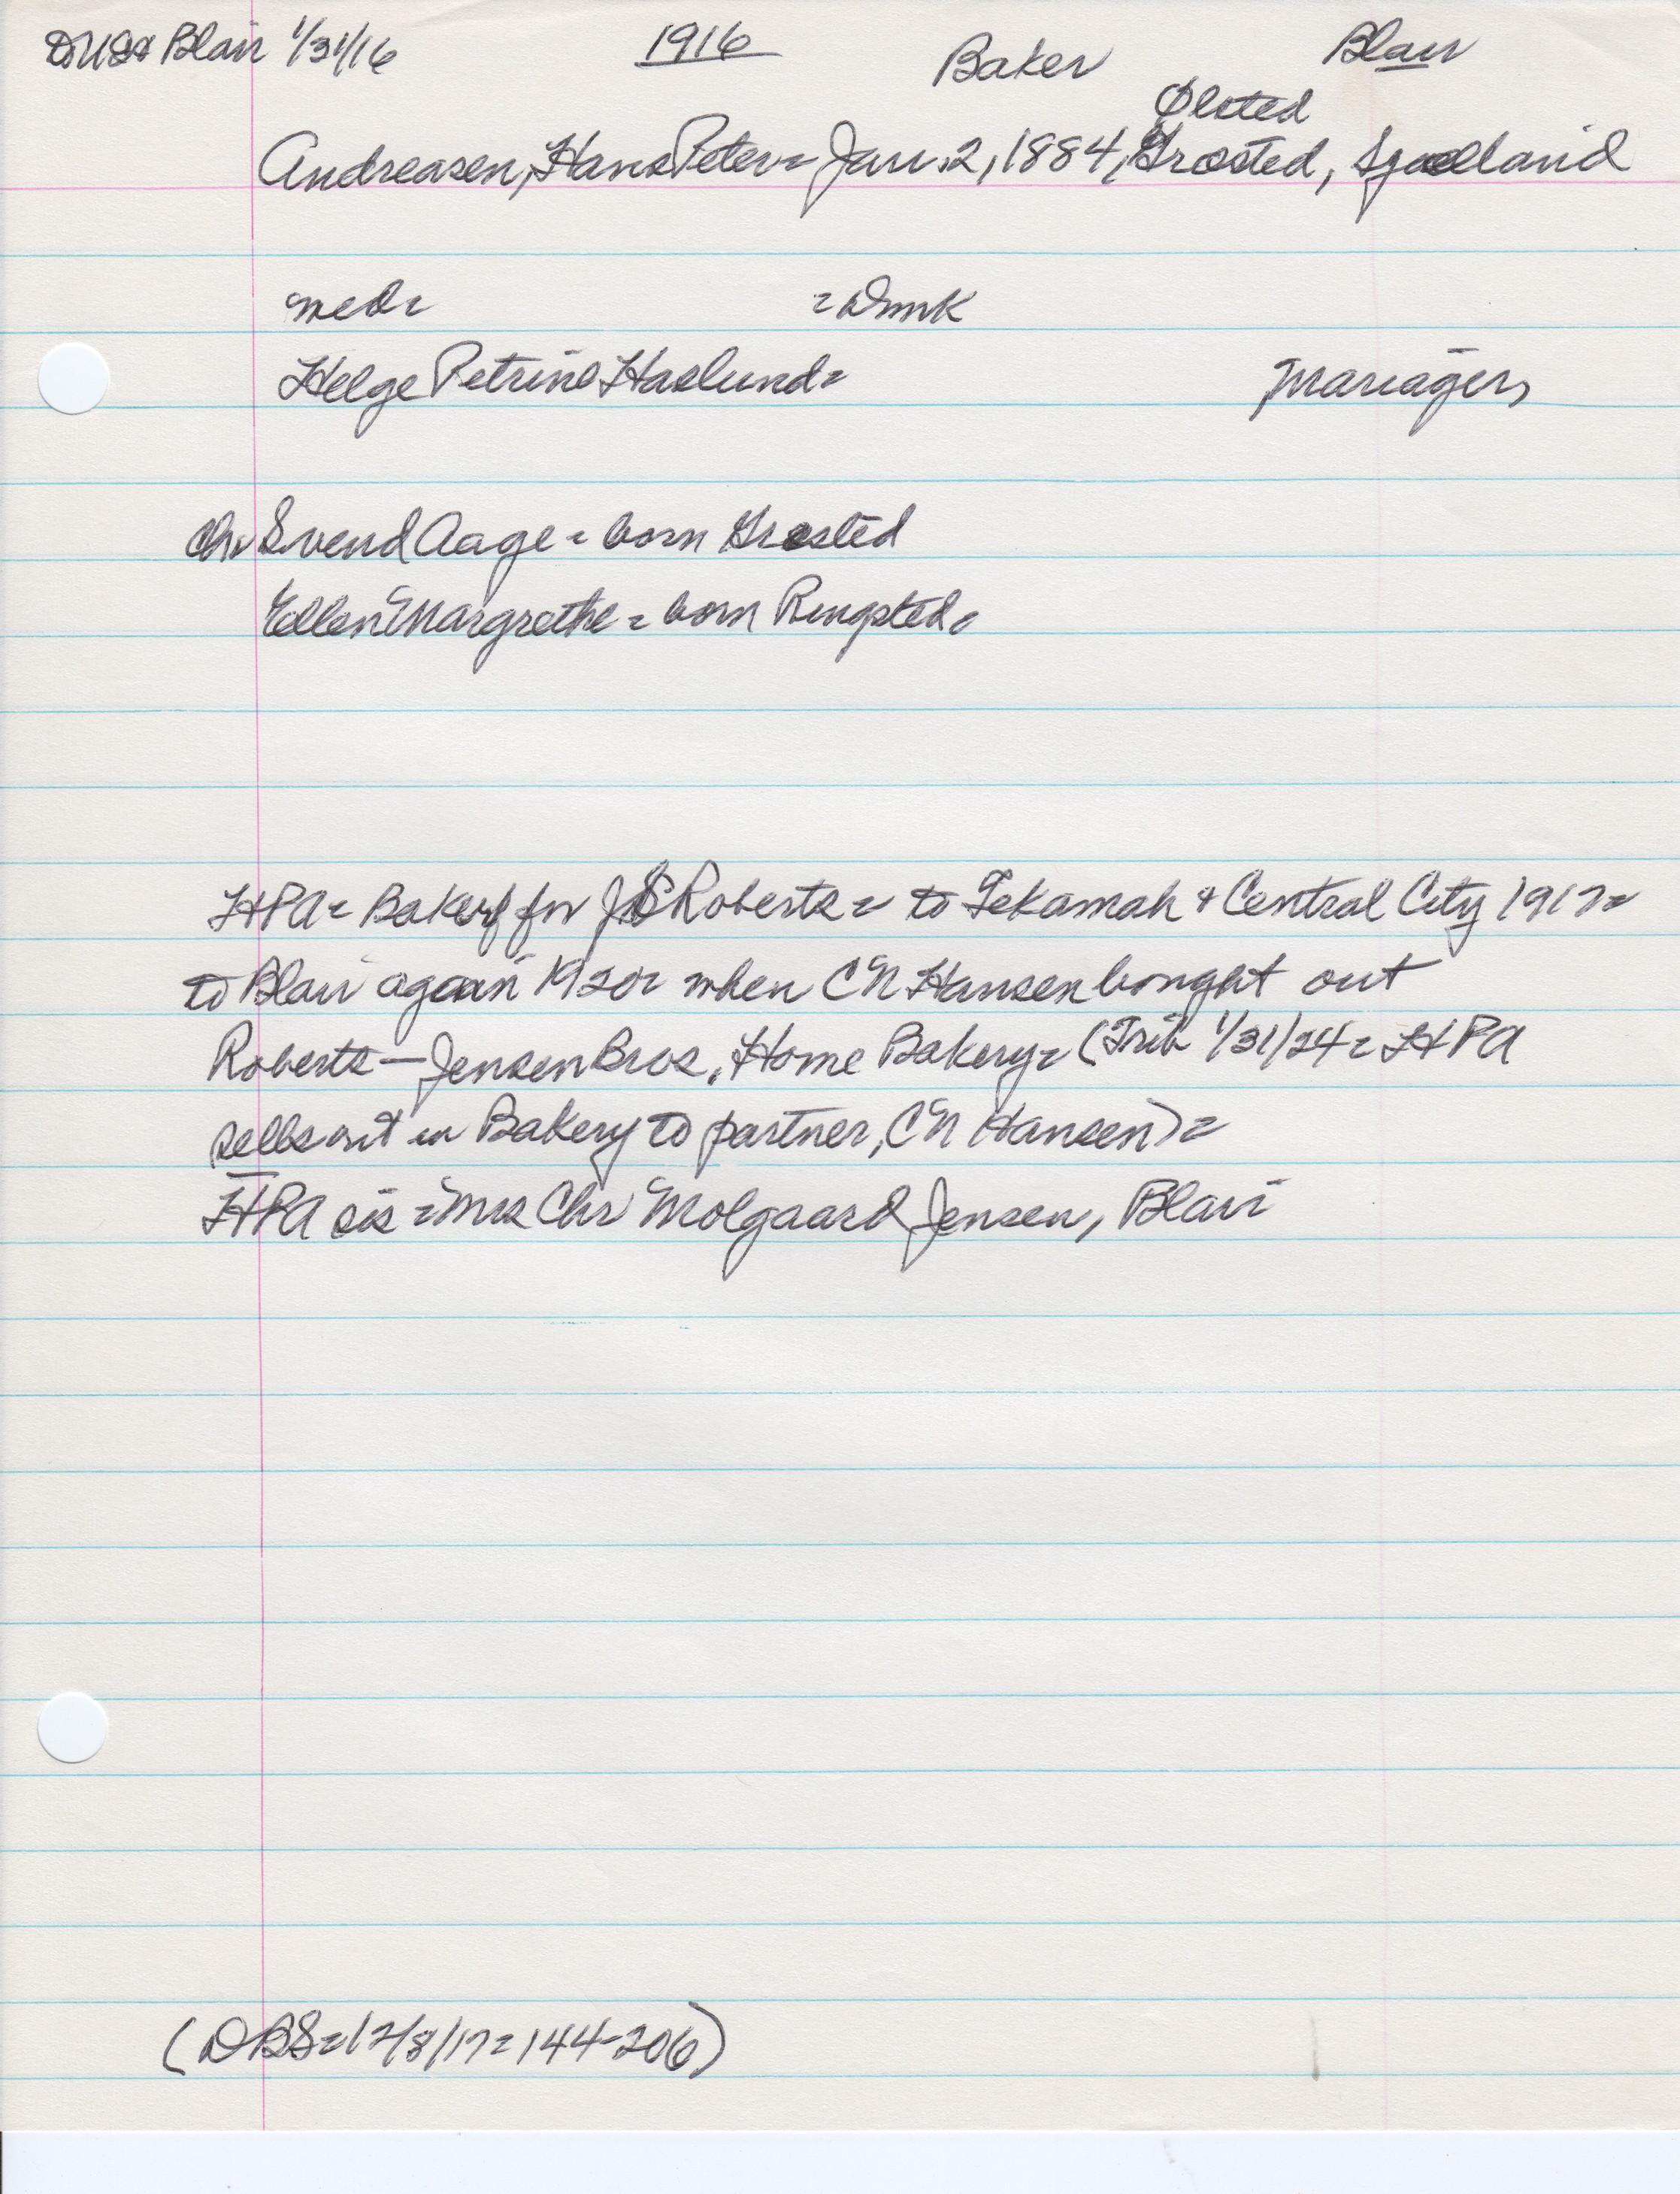 Blair 1/31/16 1916 Baker Blair
Ølsted
Andreasen, Hans Peter = Jan. 2, 1884, Græsted, Sjaelland
med = = Dmk
Helge Petrine Haslund = manager,
Chr Svend Aage = born Græsted
Ellen Margrethe = born Ringsted =
HPA = Baker for JS Roberts = to Tekamah & Central City 1917 =
to Blair again 1920 = when CN Hansen bought out
Roberts — Jensen Bros, Home Bakery = (Trib 1/31/24 = HPA
sells out in Bakery to partner, CN Hansen) =
HPA sis = Mrs Chr Molgaard Jensen, Blair
(DBS = 12/8/17 = 144-206)